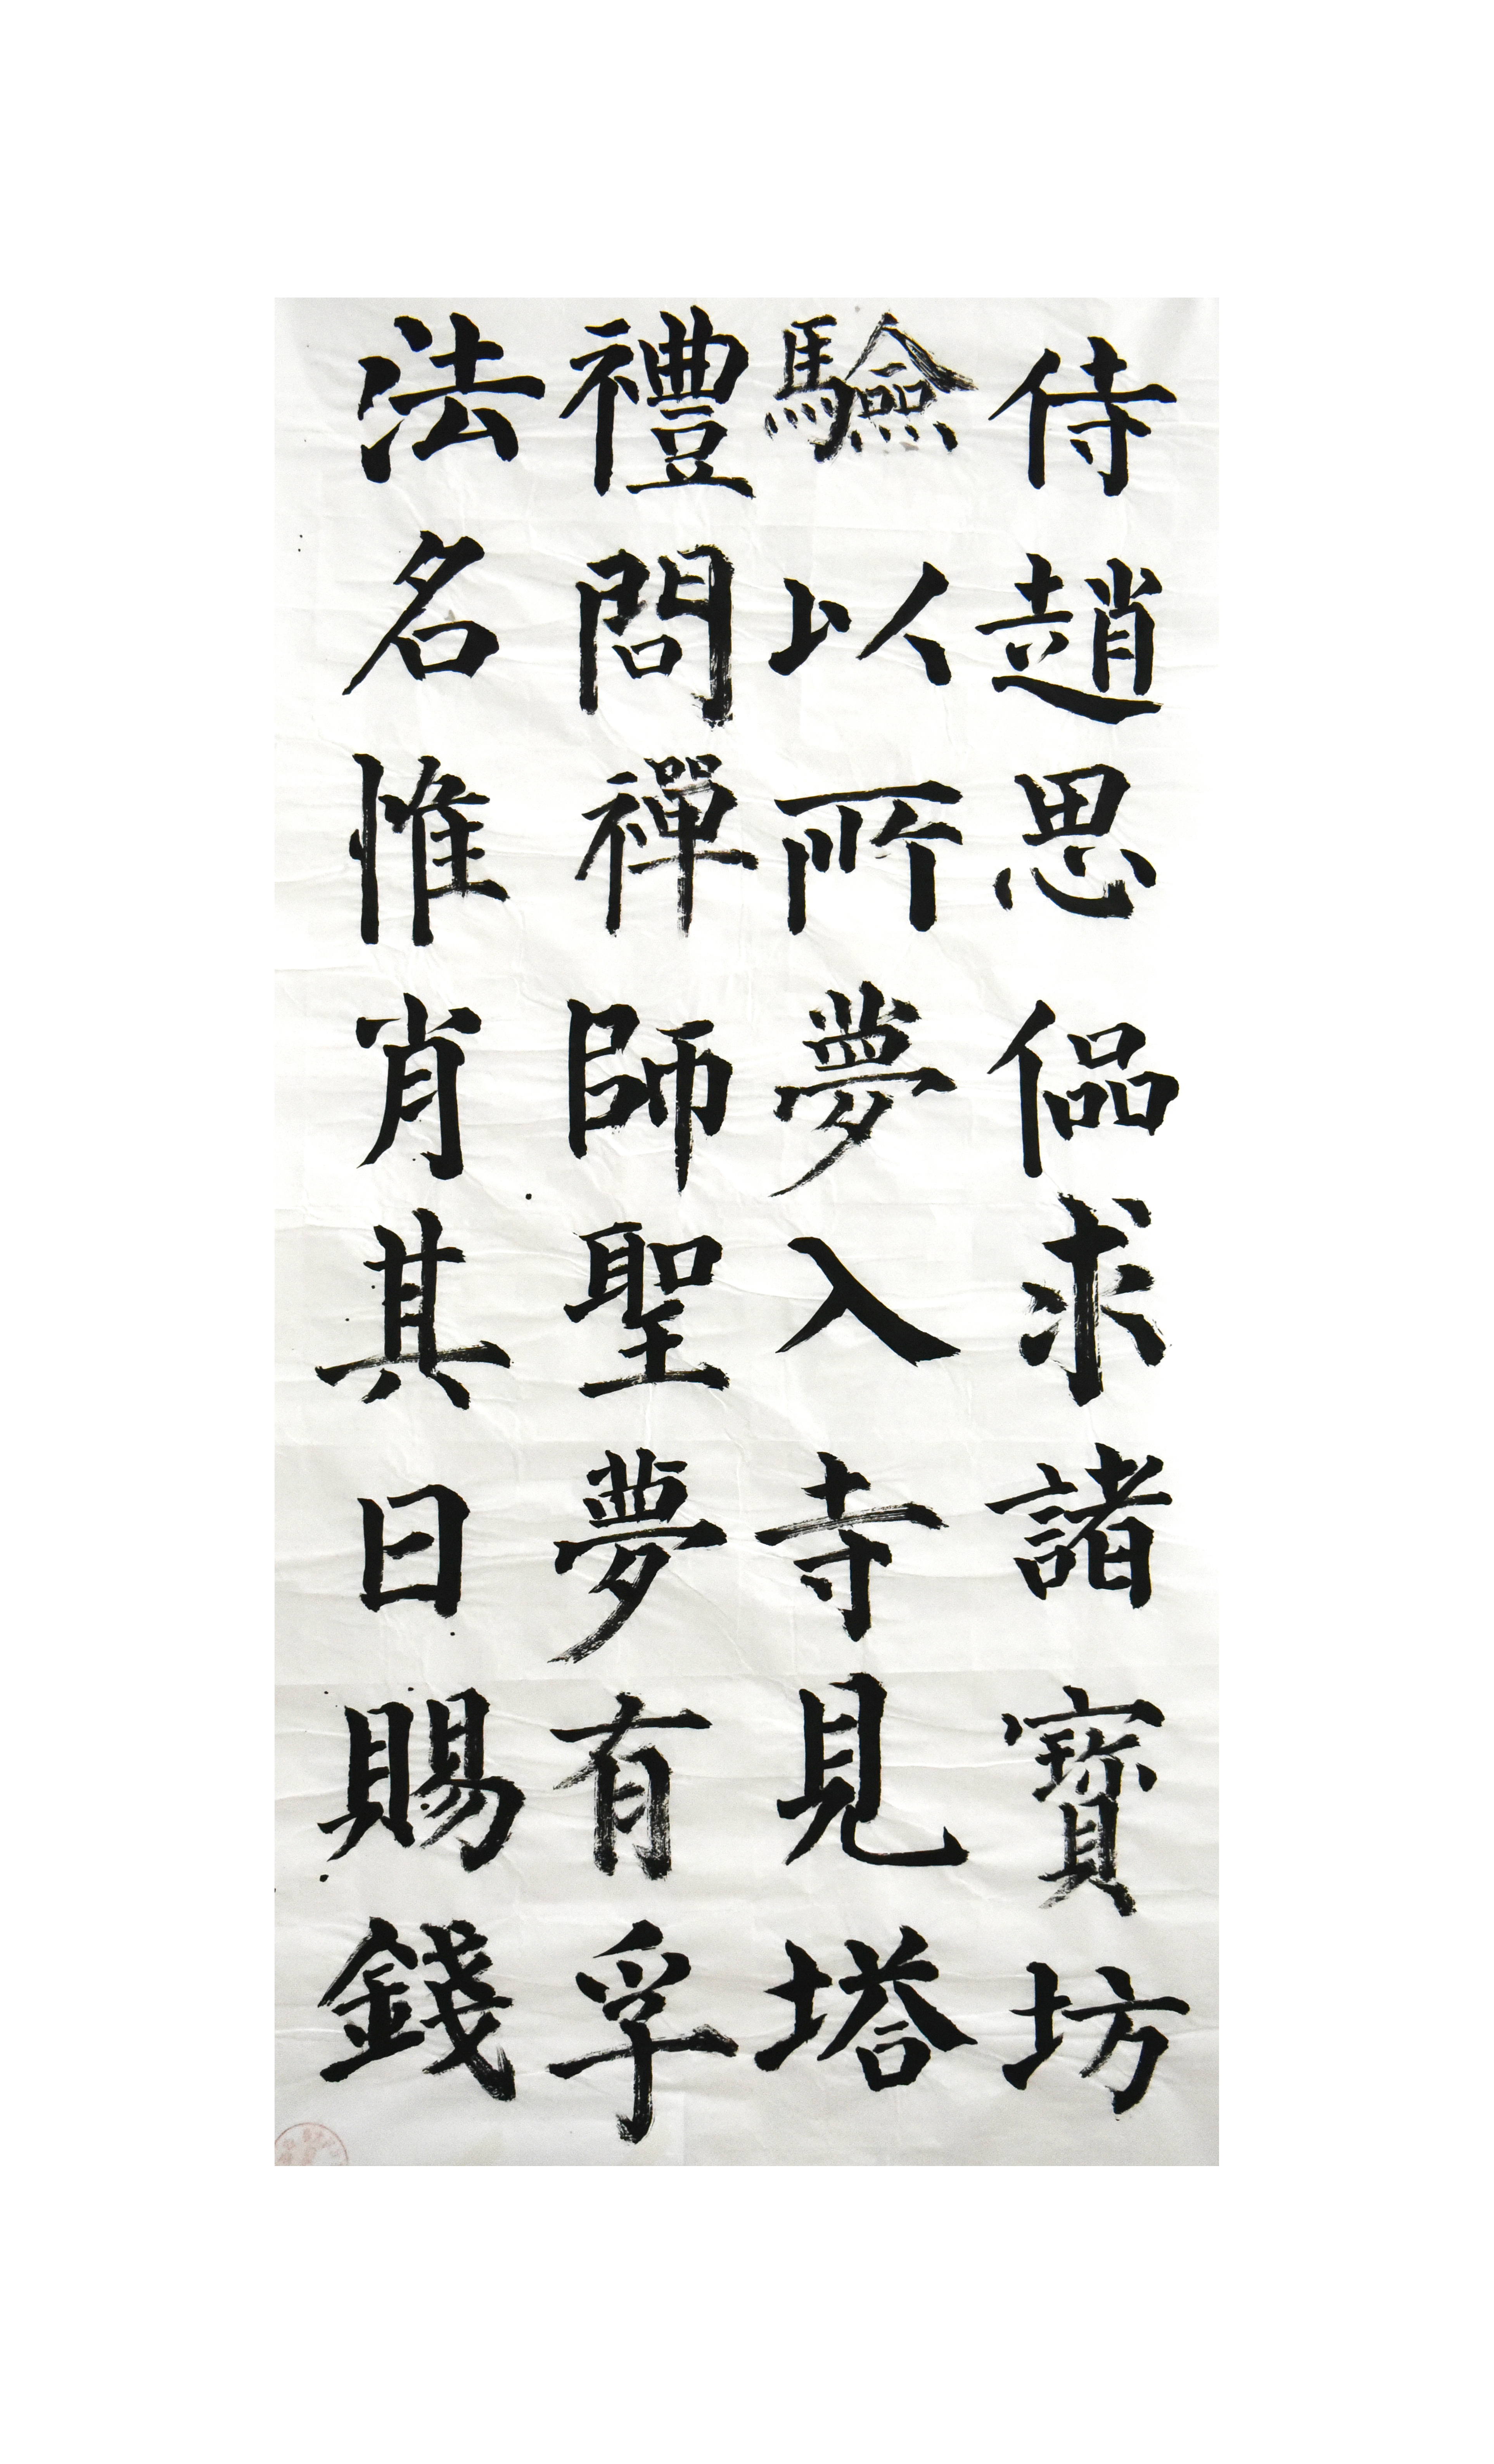 侍趙思偘求諸寶坊
驗以所夢入寺見塔
禮問禪師聖夢有孚
法名惟肖其日賜錢